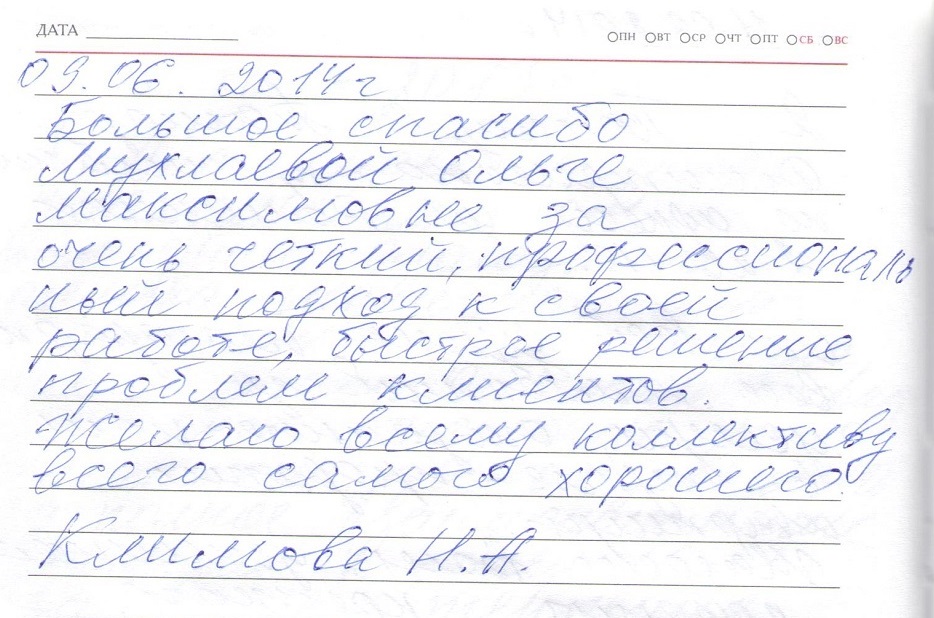 ДАТА ПН ВТ СР ЧТ ПТ СБ ВС
09.06. 2014 г
Большое спасибо
Мухлаевой Ольге
Максимовне за
очень четкий, профессиональ
ный подход к своей
работе, быстрое решение
проблем клиентов.
Желаю всему коллективу
всего самого хорошего.
Климова Н.А.